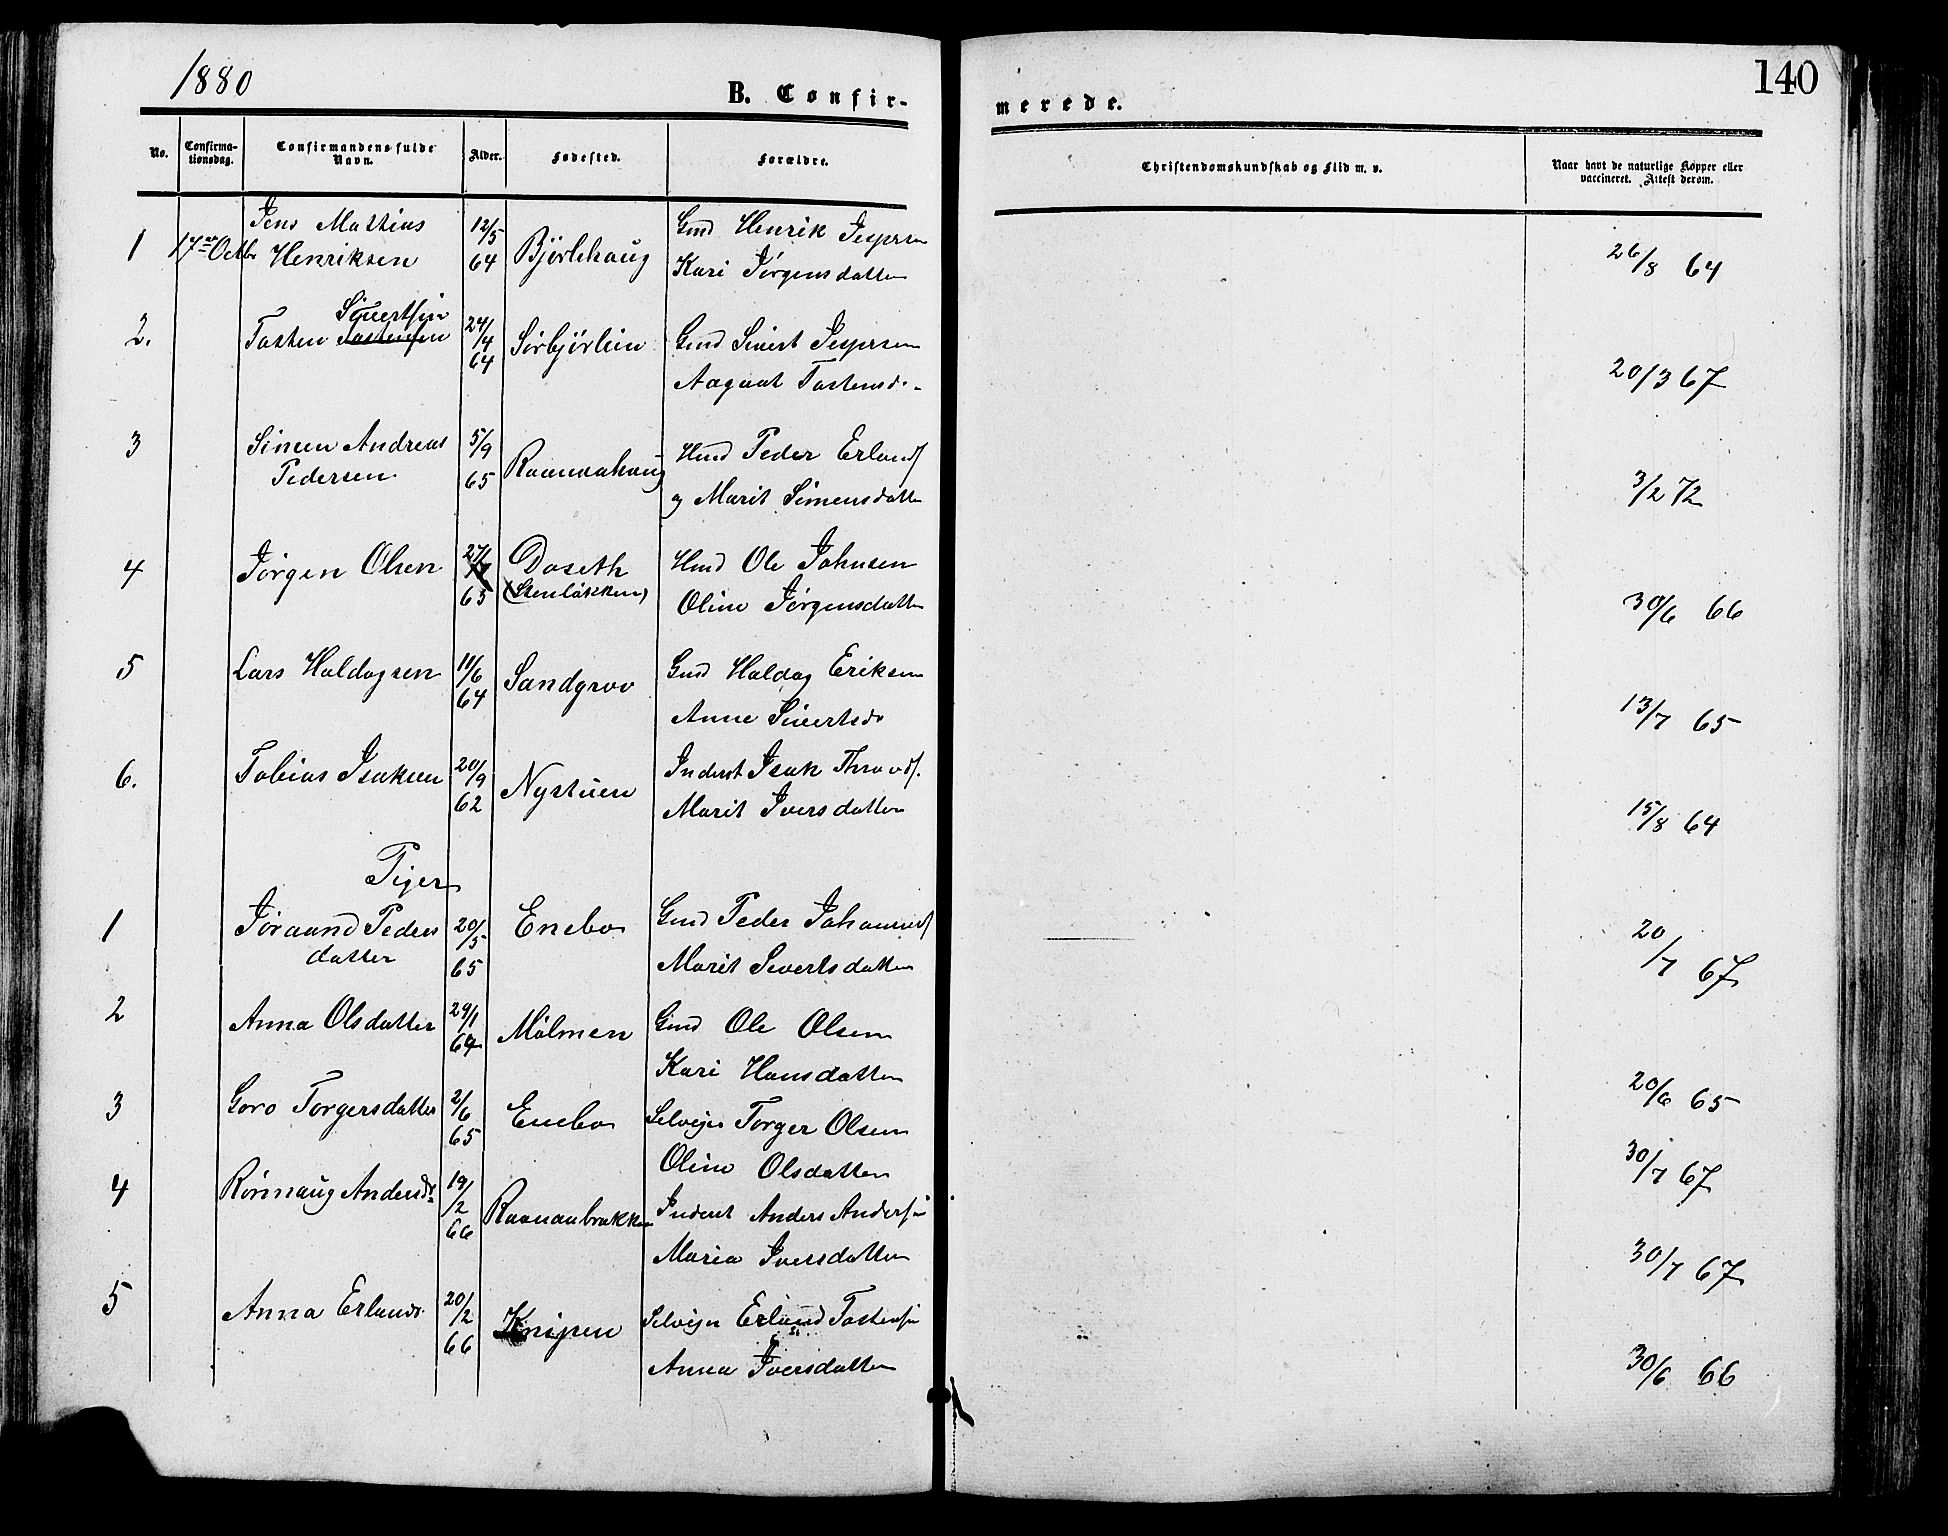 1880
B. Confir-
merede.
140
No.
Confirma-
tionsdag.
Confirmandens fulde
Navn.
Alder.
Fødested.
Forældre.
Christendomskundskab og Flid m. v.
Naar havt de naturlige Kopper eller
vaccineret. Attest derom.
1 17de Octbr Jens Mathias Henriksen 12/5 64 Bjørlihaug Gmd Henrik Jespersen
Kari Jørgensdatter 26/8 64
2. Tosten Tostensen Sivertsen 24/4 64 Sørbjørlien Gmd Sivert Jespersen
Aagaat Tostensd. 20/3 67
3 Simen Andreas Pedersen 5/9 65 Raanaahaug Hmd Peder Erlands
og Marit Simensdatter 3/2 72
4 Jørgen Olsen 27/1 65 Doseth (Stenløkken) Hmd Ole Johnsen
Oline Jørgensdatter 30/6 66
5 Lars Haldogsen 11/6 64 Sandgrov Gmd Haldog Eriksen
Anne Sivertsd. 13/7 65
6. Tobias Isaksen 20/9 62 Nystuen Inderst Isak Thrond.
Marit Iversdatter 15/8 64
Piger
1 Jøraand Peders datter 20/5 65 Enebo Gmd Peder Johannes
Marit Sivertsdatter 20/7 67
2 Anna Olsdatter 29/1 64 Mølmen Gmd Ole Olsen
Kari Hansdatter 20/6 65
3 Goro Torgersdatter 2/6 65 Enebo Selvejer Torger Olsen
Oline Olsdatter 30/7 67
4 Rønnaug Andersd. 19/2 66 Raanaabrækken Inderst Anders Andersen
Maria Iversdatter 30/7 67
5 Anna Erlands. 20/2 66 Knipen Selvejer Erland Tostensen
Anna Iversdatter 30/6 66